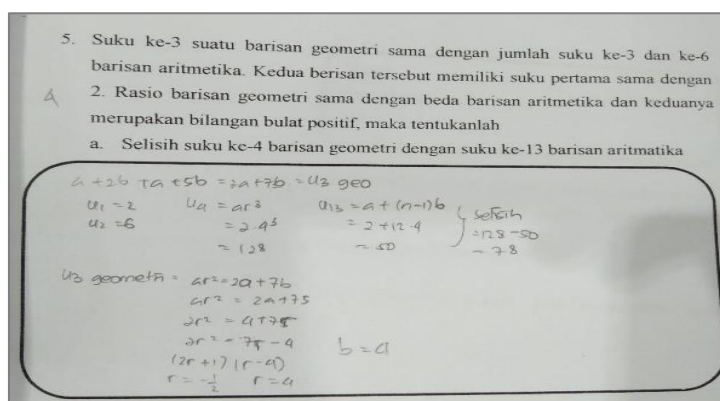 5. Suku ke-3 suatu barisan geometri sama dengan jumlah suku ke-3 dan ke-6
barisan aritmetika. Kedua berisan tersebut memiliki suku pertama sama dengan
2. Rasio barisan geometri sama dengan beda barisan aritmetika dan keduanya
merupakan bilangan bulat positif, maka tentukanlah
a. Selisih suku ke-4 barisan geometri dengan suku ke-13 barisan aritmatika
a + 2b + a + 5b = 2a + 7b = U3 geo
U1 = 2 U4 = ar³ U13 = a + (n-1)b
U2 = 6 = 2.4³ = 2 + 12.4 selisih
= 128 = 50 = 128 - 50
= 78
U3 geometri = ar² = 2a + 7b
ar² = 2a + 7
2r² = 4 + 7r
2r² = 7r - 4 b = 4
(2r + 1) (r - 4)
r = -1/2 r = 4